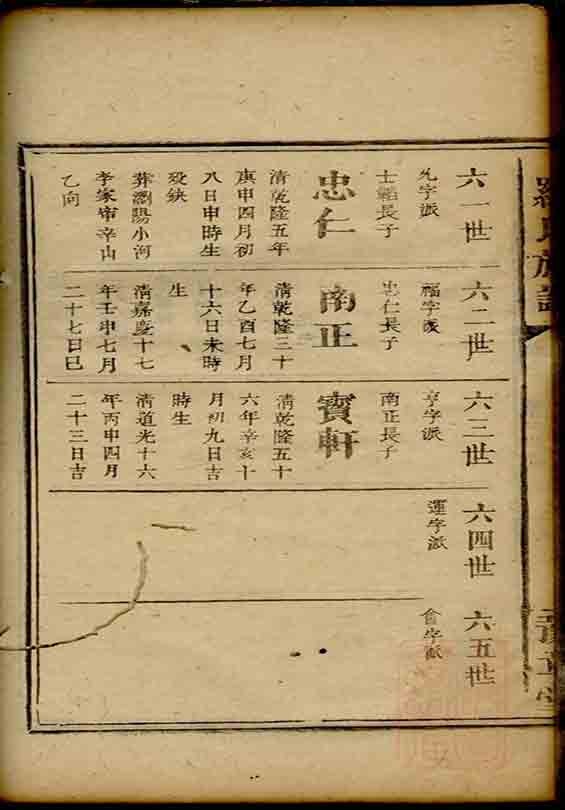 羅氏族譜
六一世
字派
士韜長子
忠仁
清乾隆五年
庚申四月初
八日申時生
歿缺
葬瀏陽小河
李家辛山
乙向
六二世
福字派
忠仁長子
南正
清乾隆三十
年乙酉七月
十六日未時
生
清嘉慶十七
年壬申七月
二十七日巳
六三世
亨字派
南正長子
寶軒
清乾隆五十
六年辛亥十
月初九日吉
時生
清道光十六
年丙申四月
二十三日吉
六四世
運字派
六五世
會字派